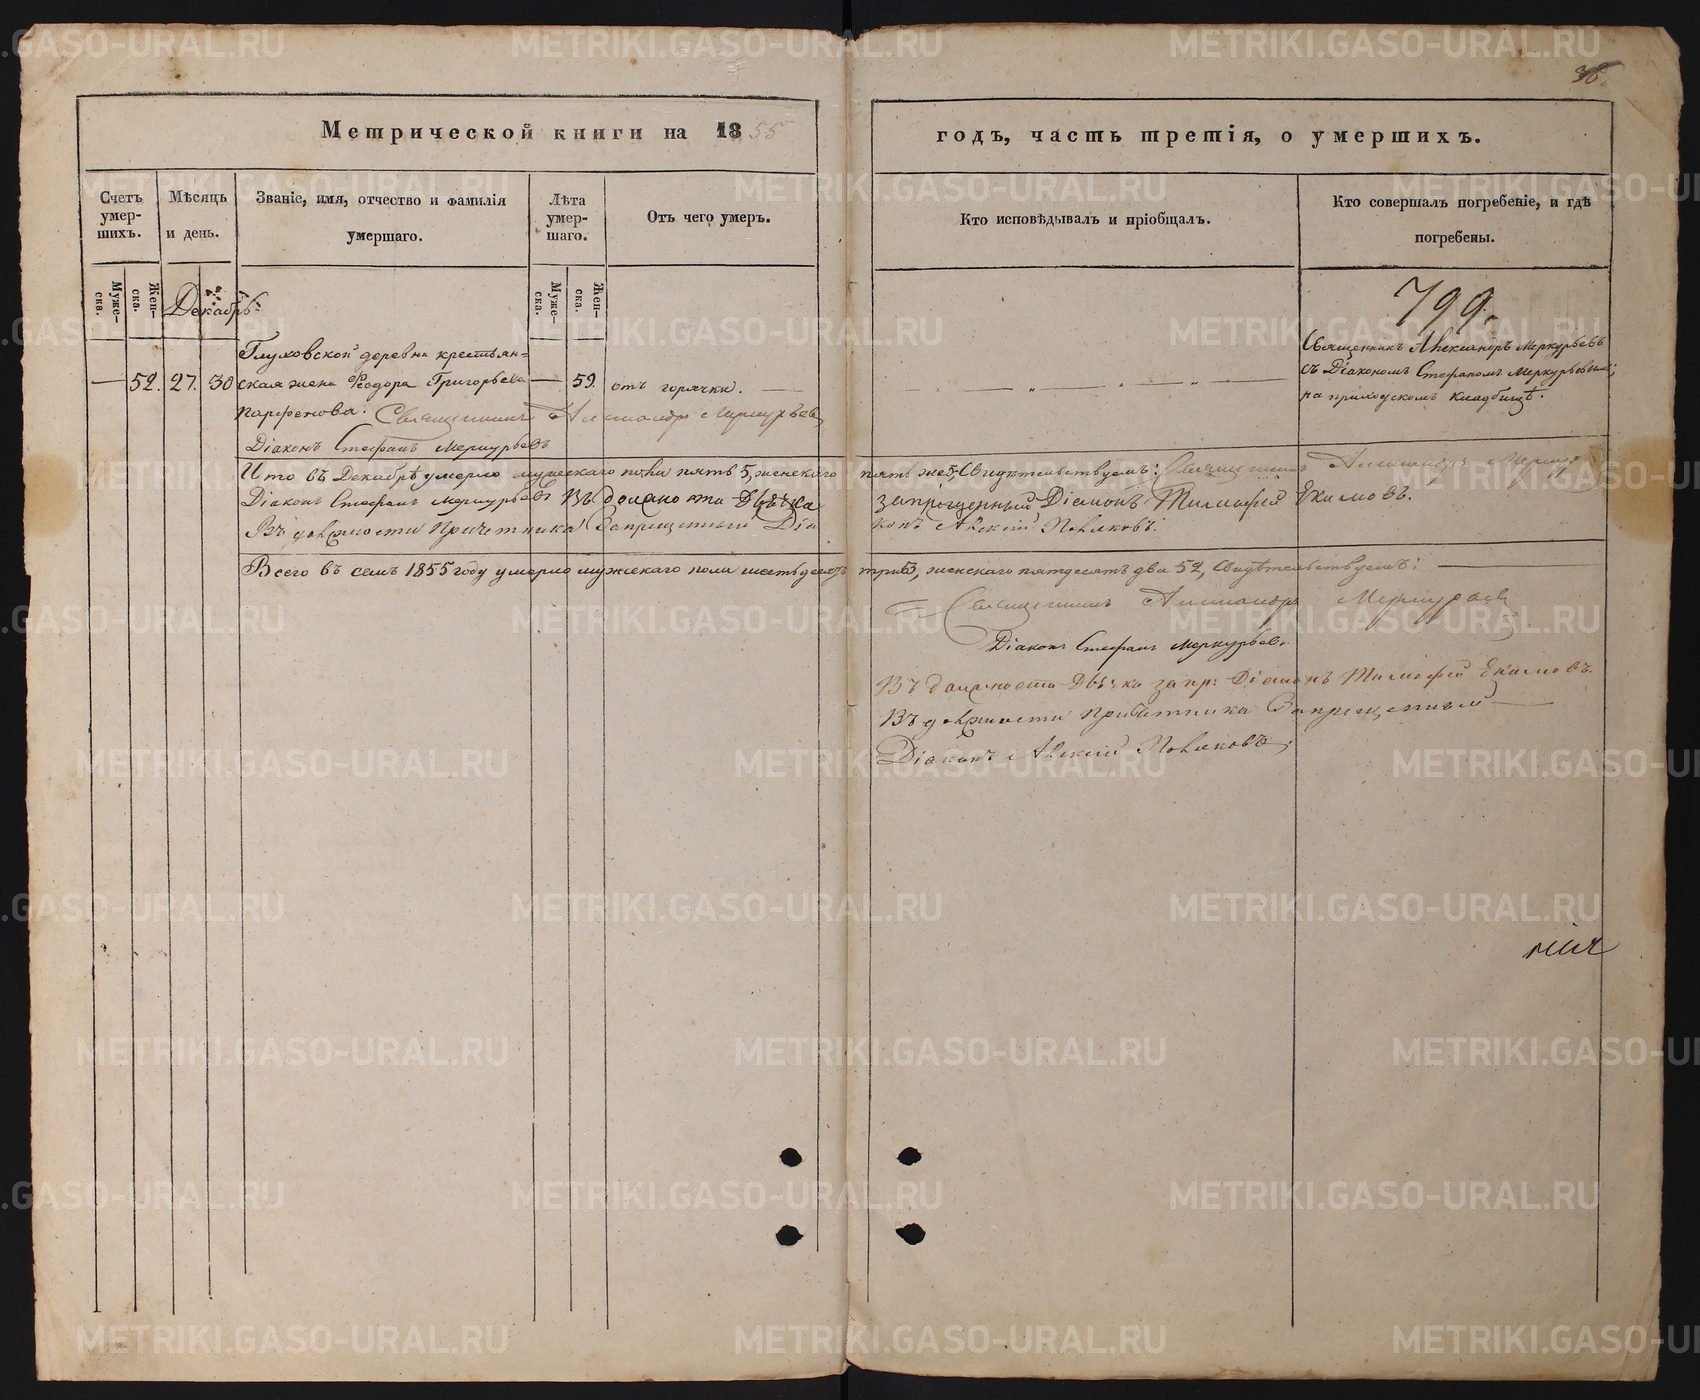 36.
Метрической книги на 1855 годъ, часть третія, о умершихъ.
Счетъ умер-шихъ.
Мѣсяцъ и день.
Званіе, имя, отчество и фамилія умершаго.
Лѣта умер-шаго.
Отъ чего умеръ.
Кто исповѣдывалъ и пріобщалъ.
Кто совершалъ погребеніе, и гдѣ погребены.
Муже-ска.
Жен-ска.
Декабрь
Муже-ска.
Жен-ска.
799.
Глуховской деревни крестьян=
— 52. 27. 30 ская жена Феодора Григорьева — 59. отъ горячки.
Парфенова. Священникъ Александръ Меркурьевъ
Діаконъ Стефанъ Меркурьевъ
Священникъ Александръ Меркурьевъ
съ Діакономъ Стефаномъ Меркурьевымъ;
на приходскомъ кладбищѣ.
Итого въ Декабрѣ умерло мужескаго пола пять 5, женскаго пять же 5, Свидѣтельствуемъ: Священникъ Александръ
Діаконъ Стефанъ Меркурьевъ Въ должности Дьячка запрещенный Діаконъ Тимофей Екимовъ.
Въ должности Причетника Запрещенный Діаконъ Алексій Поляковъ.
Всего въ семъ 1855 году умерло мужескаго пола шестьдесятъ три 63, женскаго пятдесятъ два 52, Свидѣтельствуемъ:
Священникъ Александръ Меркурьевъ
Діаконъ Стефанъ Меркурьевъ
Въ должности Дьячка запр: Діаконъ Тимофей Екимовъ.
Въ должности Причетника Запрещенный
Діаконъ Алексій Поляковъ.
METRIKI.GASO-URAL.RU